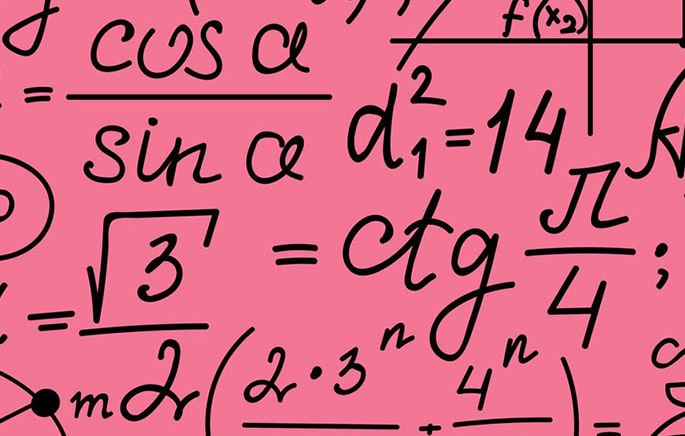 f(x₂)
= cos α / sin α
d₁² = 14
= √3 / 2
= ctg π/4 ;
m
(2·3ⁿ / + 4ⁿ / ) =